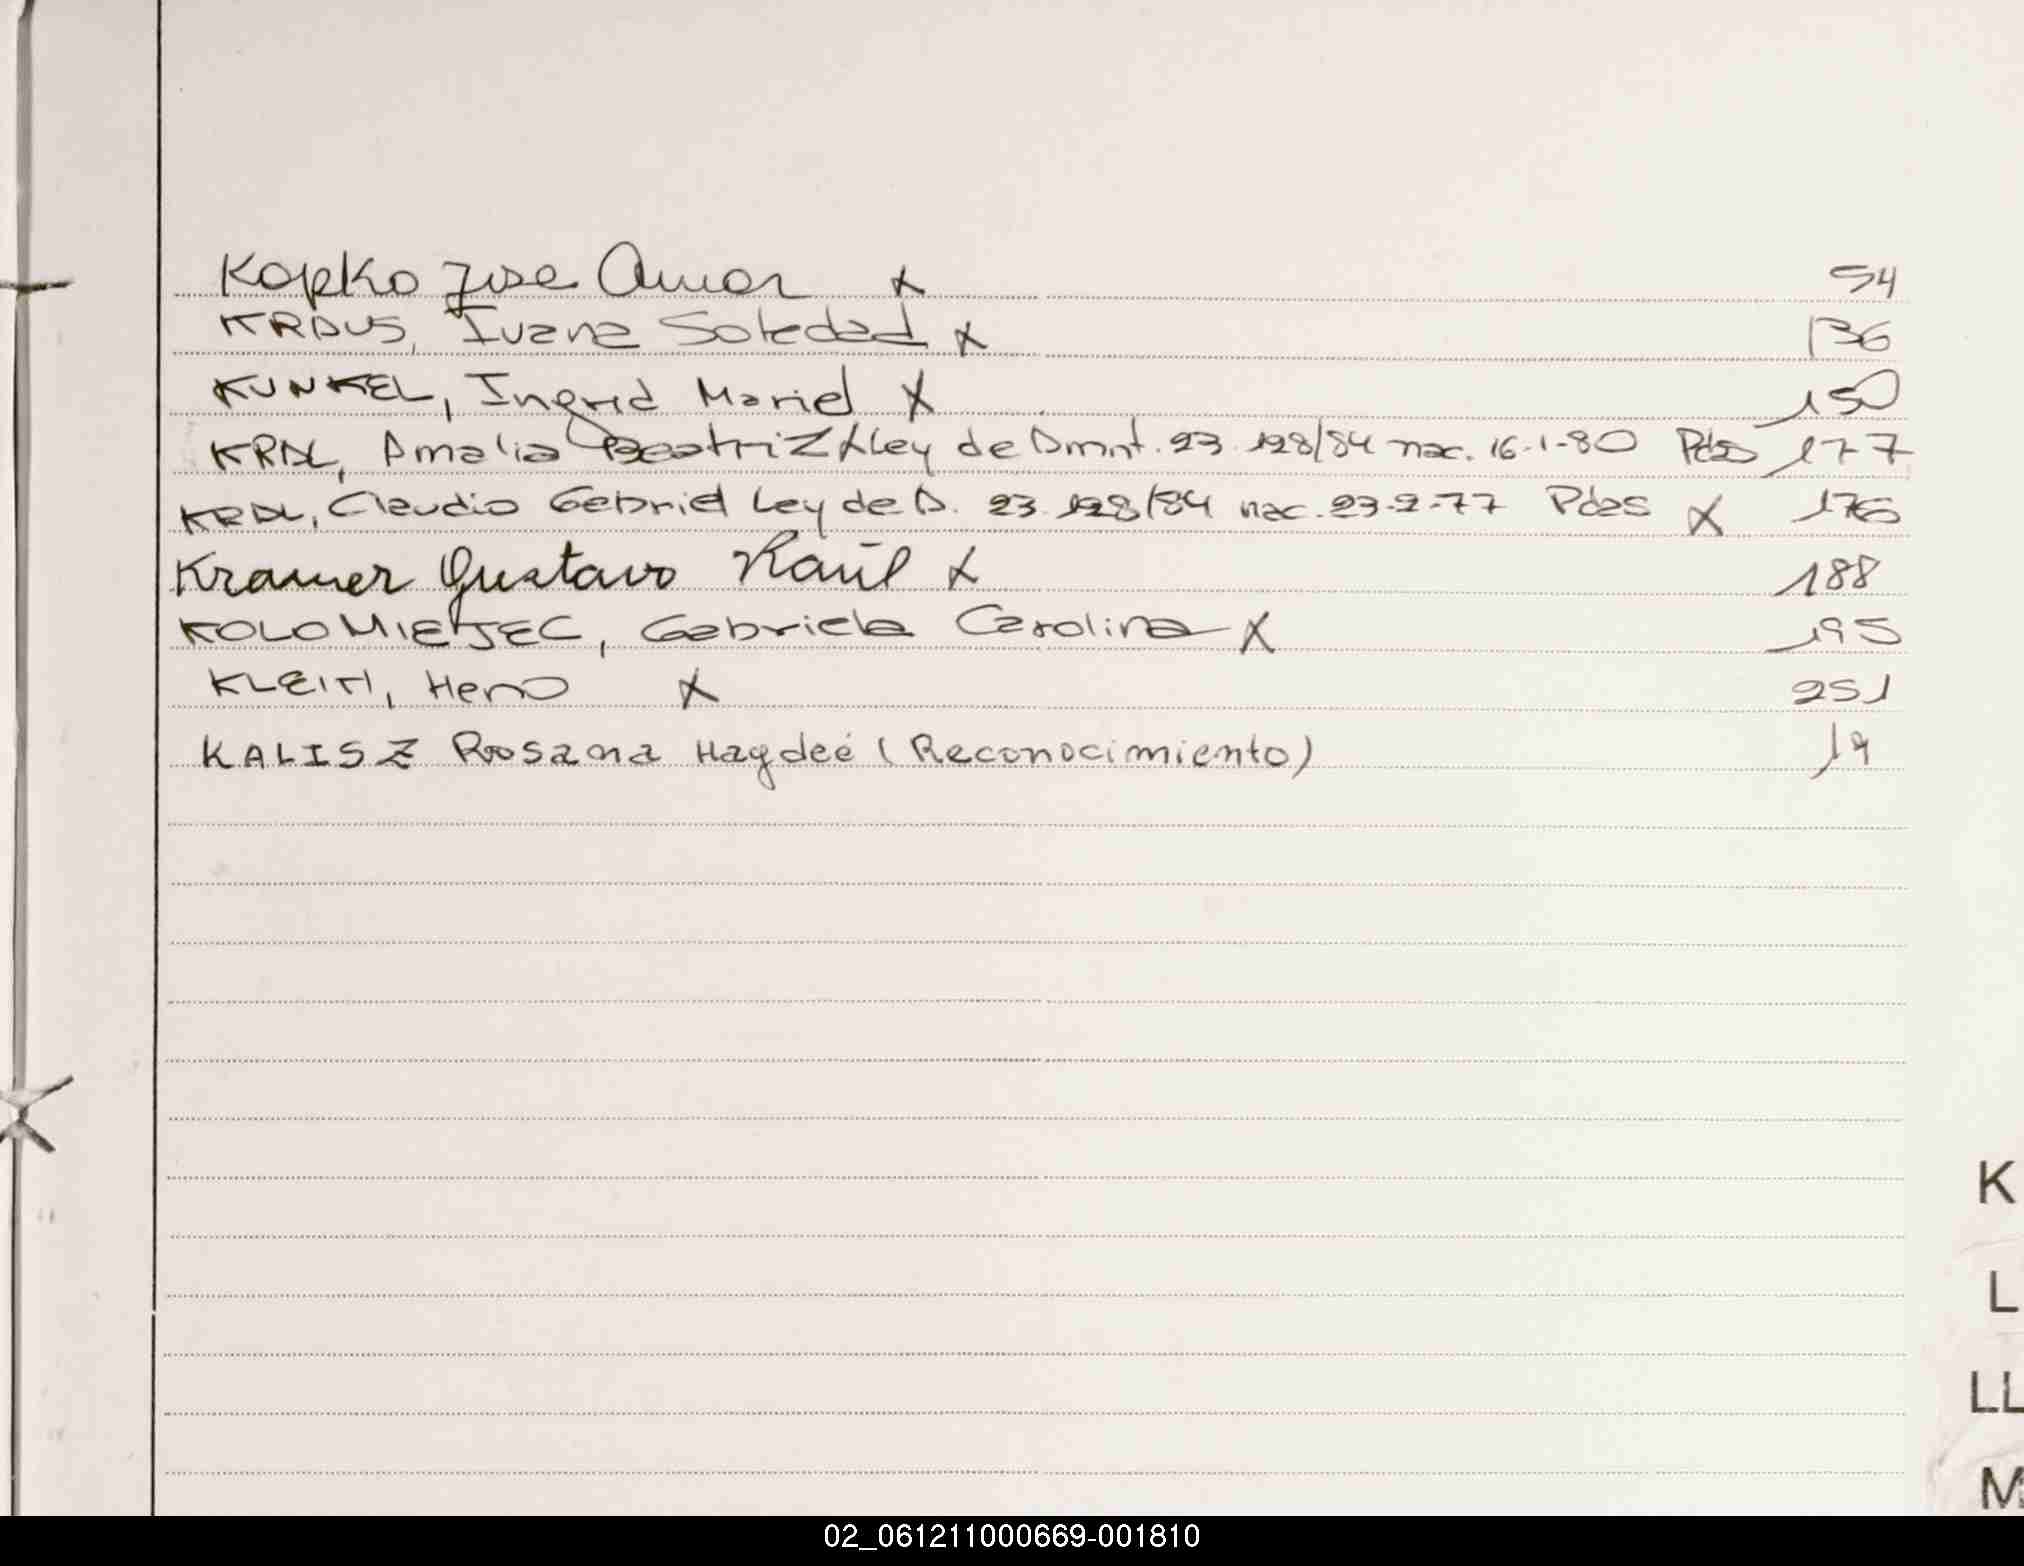 Kopko Jose Omar X 54
KRAUS, Ivana Soledad X 136
KUNKEL, Ingrid Mariel X 150
KRAL, Amalia Beatriz X Ley de Amnt. 23.128/84 nac. 16-1-80 Pdas 177
KRAL, Claudio Gabriel Ley de A. 23.128/84 nac. 23-2-77 Pdas X 176
Kramer Gustavo Raúl X 188
KOLOMIEJEC, Gabriela Carolina X 195
X 251
KALISZ Rosana Haydeé (Reconocimiento) 19
K
L
LL
M
02_061211000669-001810